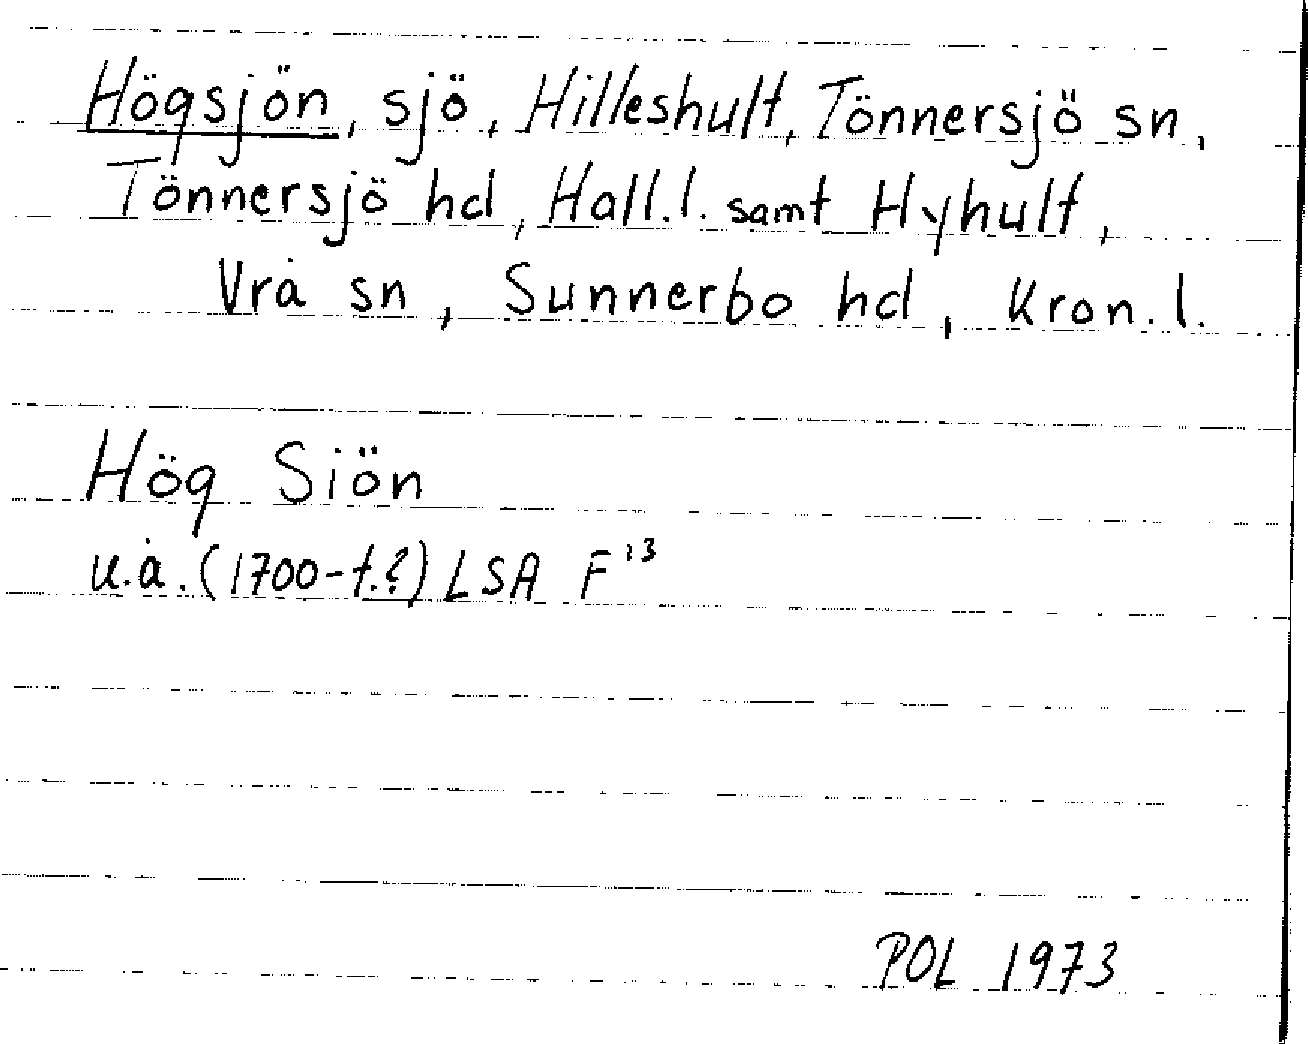 Högsjön, sjö, Hilleshult, Tönnersjö sn,
Tönnersjö hd, Hall.l. samt Hyhult,
Vrå sn, Sunnerbo hd, Kron.l.
Hög Siön
u.å. (1700-t.?) LSA F¹³
POL 1973